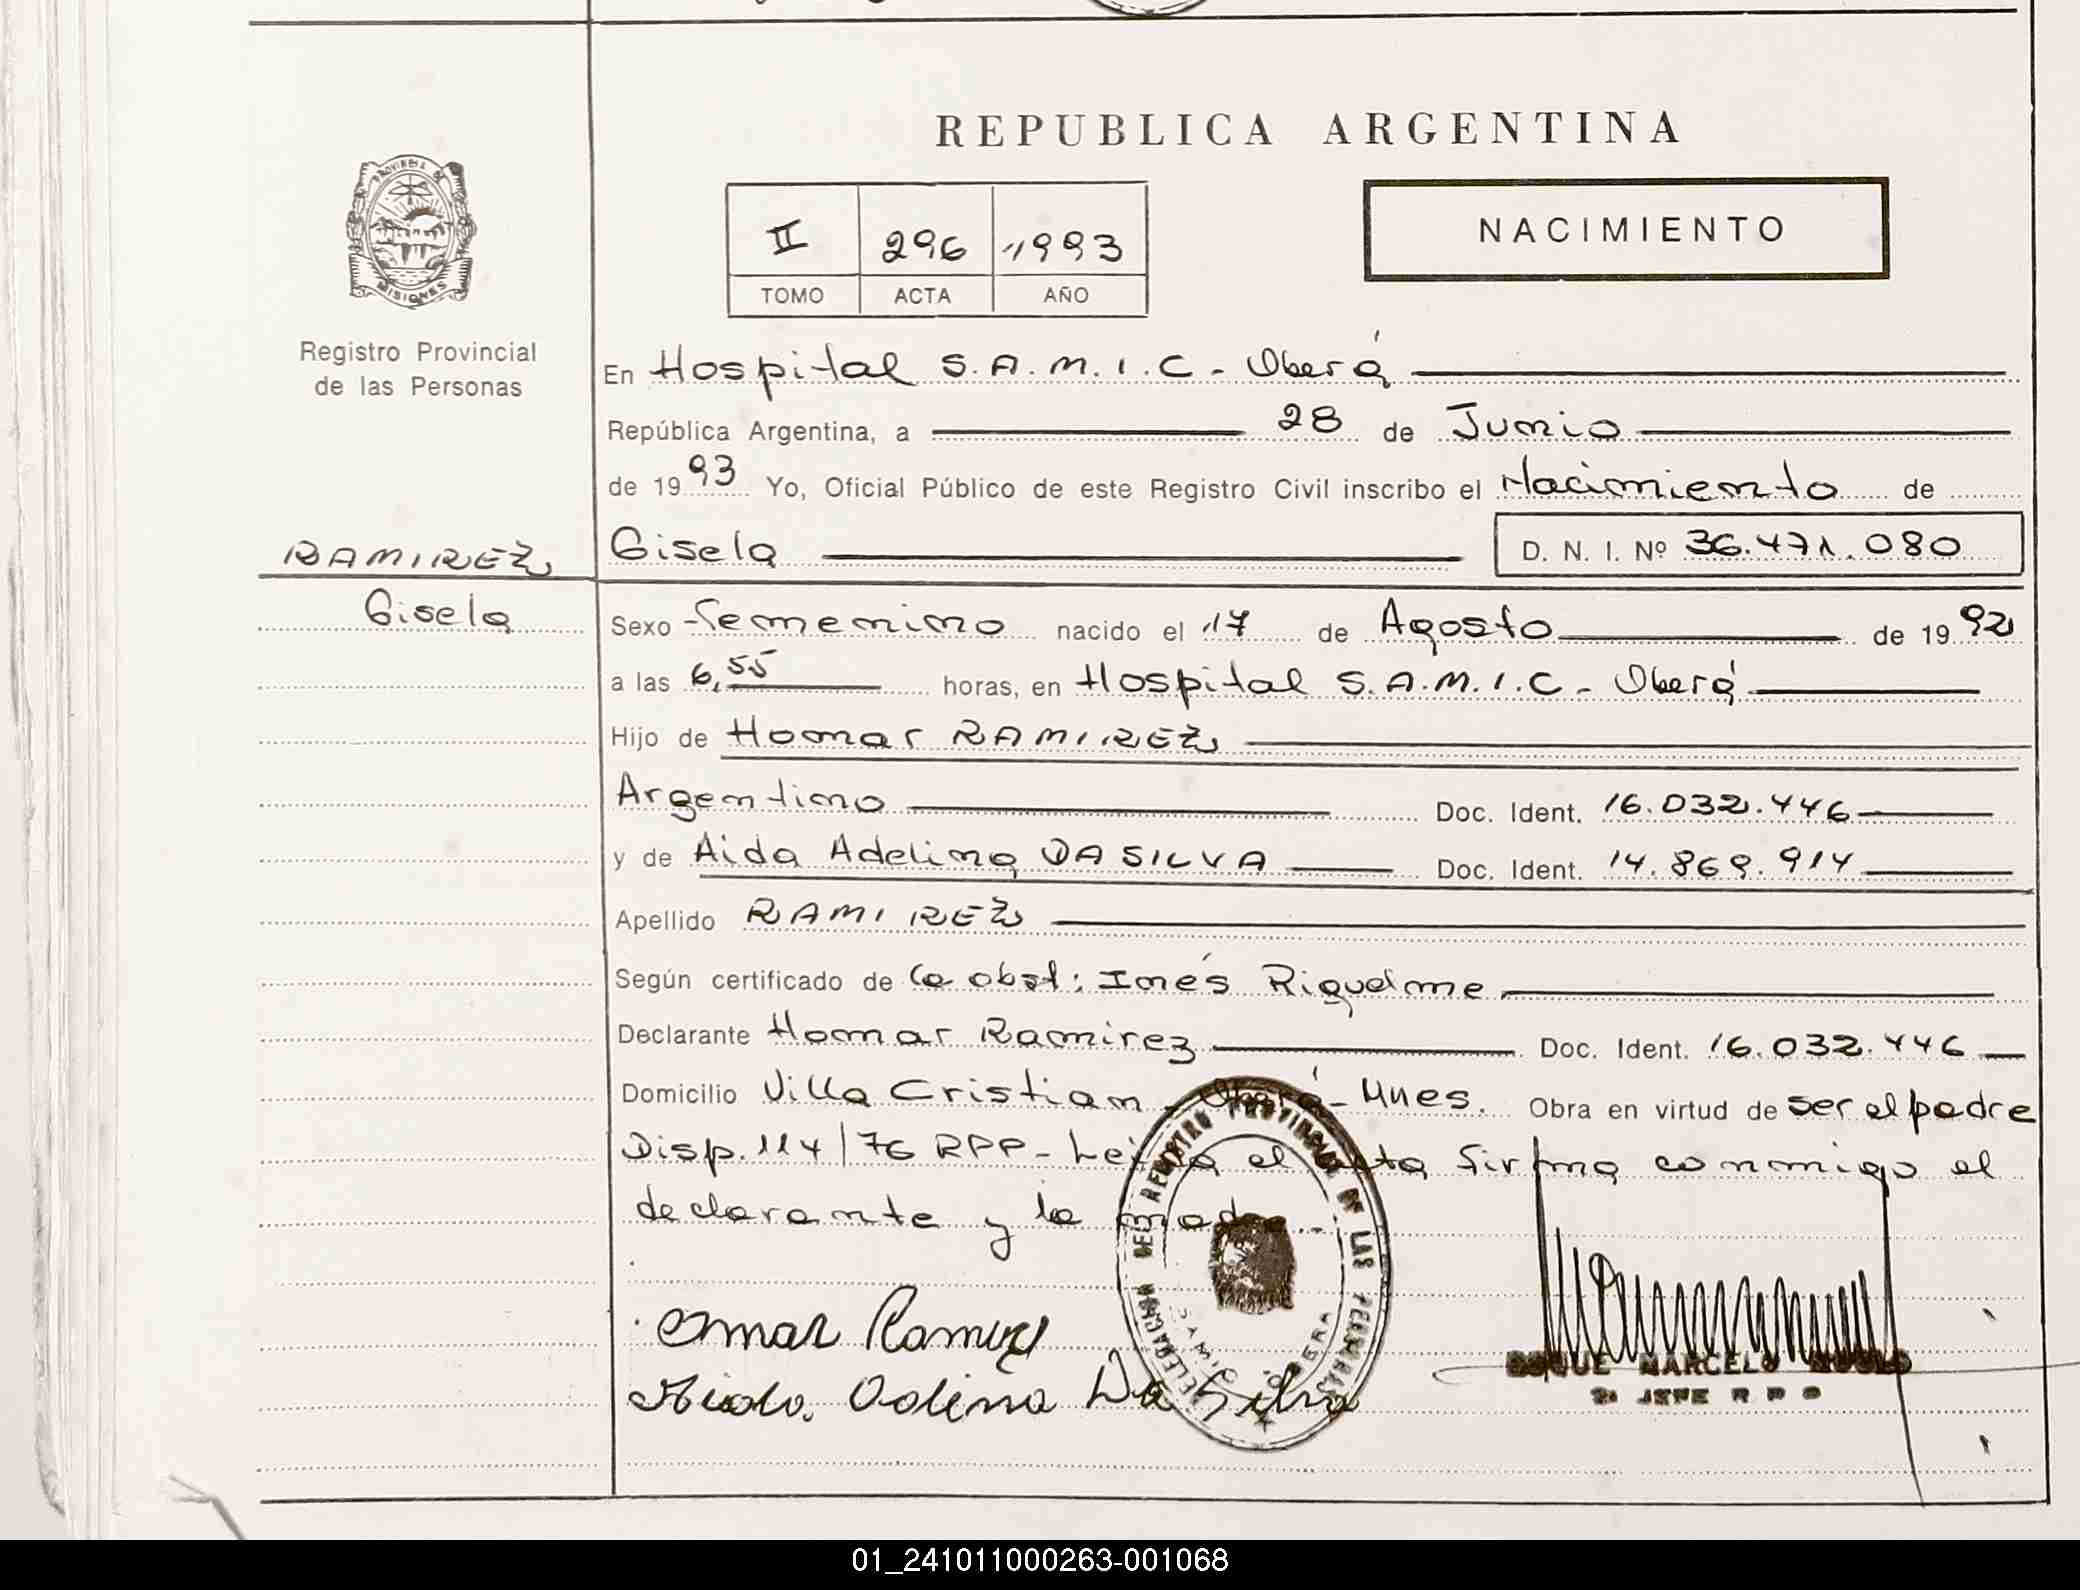 REPUBLICA ARGENTINA
PROVINCIA DE
MISIONES
II 296 1993
TOMO ACTA AÑO
NACIMIENTO
Registro Provincial
de las Personas
En Hospital S.A.M.I.C. - Oberá
República Argentina, a 28 de Junio
de 1993 Yo, Oficial Público de este Registro Civil inscribo el Nacimiento de
RAMIREZ
Gisela D. N. I. Nº 36.471.080
Gisela
Sexo Femenino nacido el 17 de Agosto de 1992
a las 6,55 horas, en Hospital S.A.M.I.C - Oberá
Hijo de Homar RAMIREZ
Argentino Doc. Ident. 16.032.446
y de Aida Adelina DA SILVA Doc. Ident. 14.869.914
Apellido RAMIREZ
Según certificado de la obst: Inés Riquelme
Declarante Homar Ramirez Doc. Ident. 16.032.446
Domicilio Villa Cristian - Oberá - Mnes. Obra en virtud de ser el padre
Disp. 114/76 RPP - Leída el acta firma conmigo el
declarante y la madre.-
DELEGACION DEL REGISTRO PROVINCIAL DE LAS PERSONAS
OBERA
Omar Ramirez
Aida Adelina Da Silva
ROQUE MARCELO
2º JEFE R P P
01_241011000263-001068